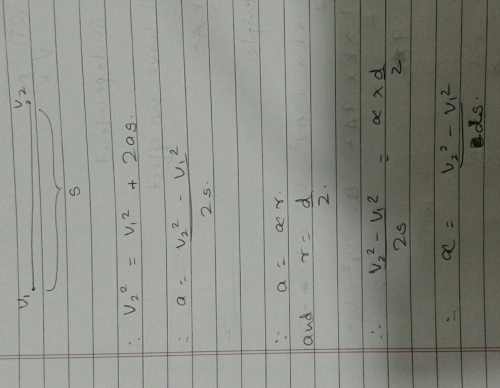 V₁ V₂
s
∴ V₂² = V₁² + 2as
∴ a = V₂² - V₁² / 2s
∵ a = αr.
and r = d / 2.
∴ V₂² - V₁² / 2s = α × d / 2
∴ α = V₂² - V₁² / ds.